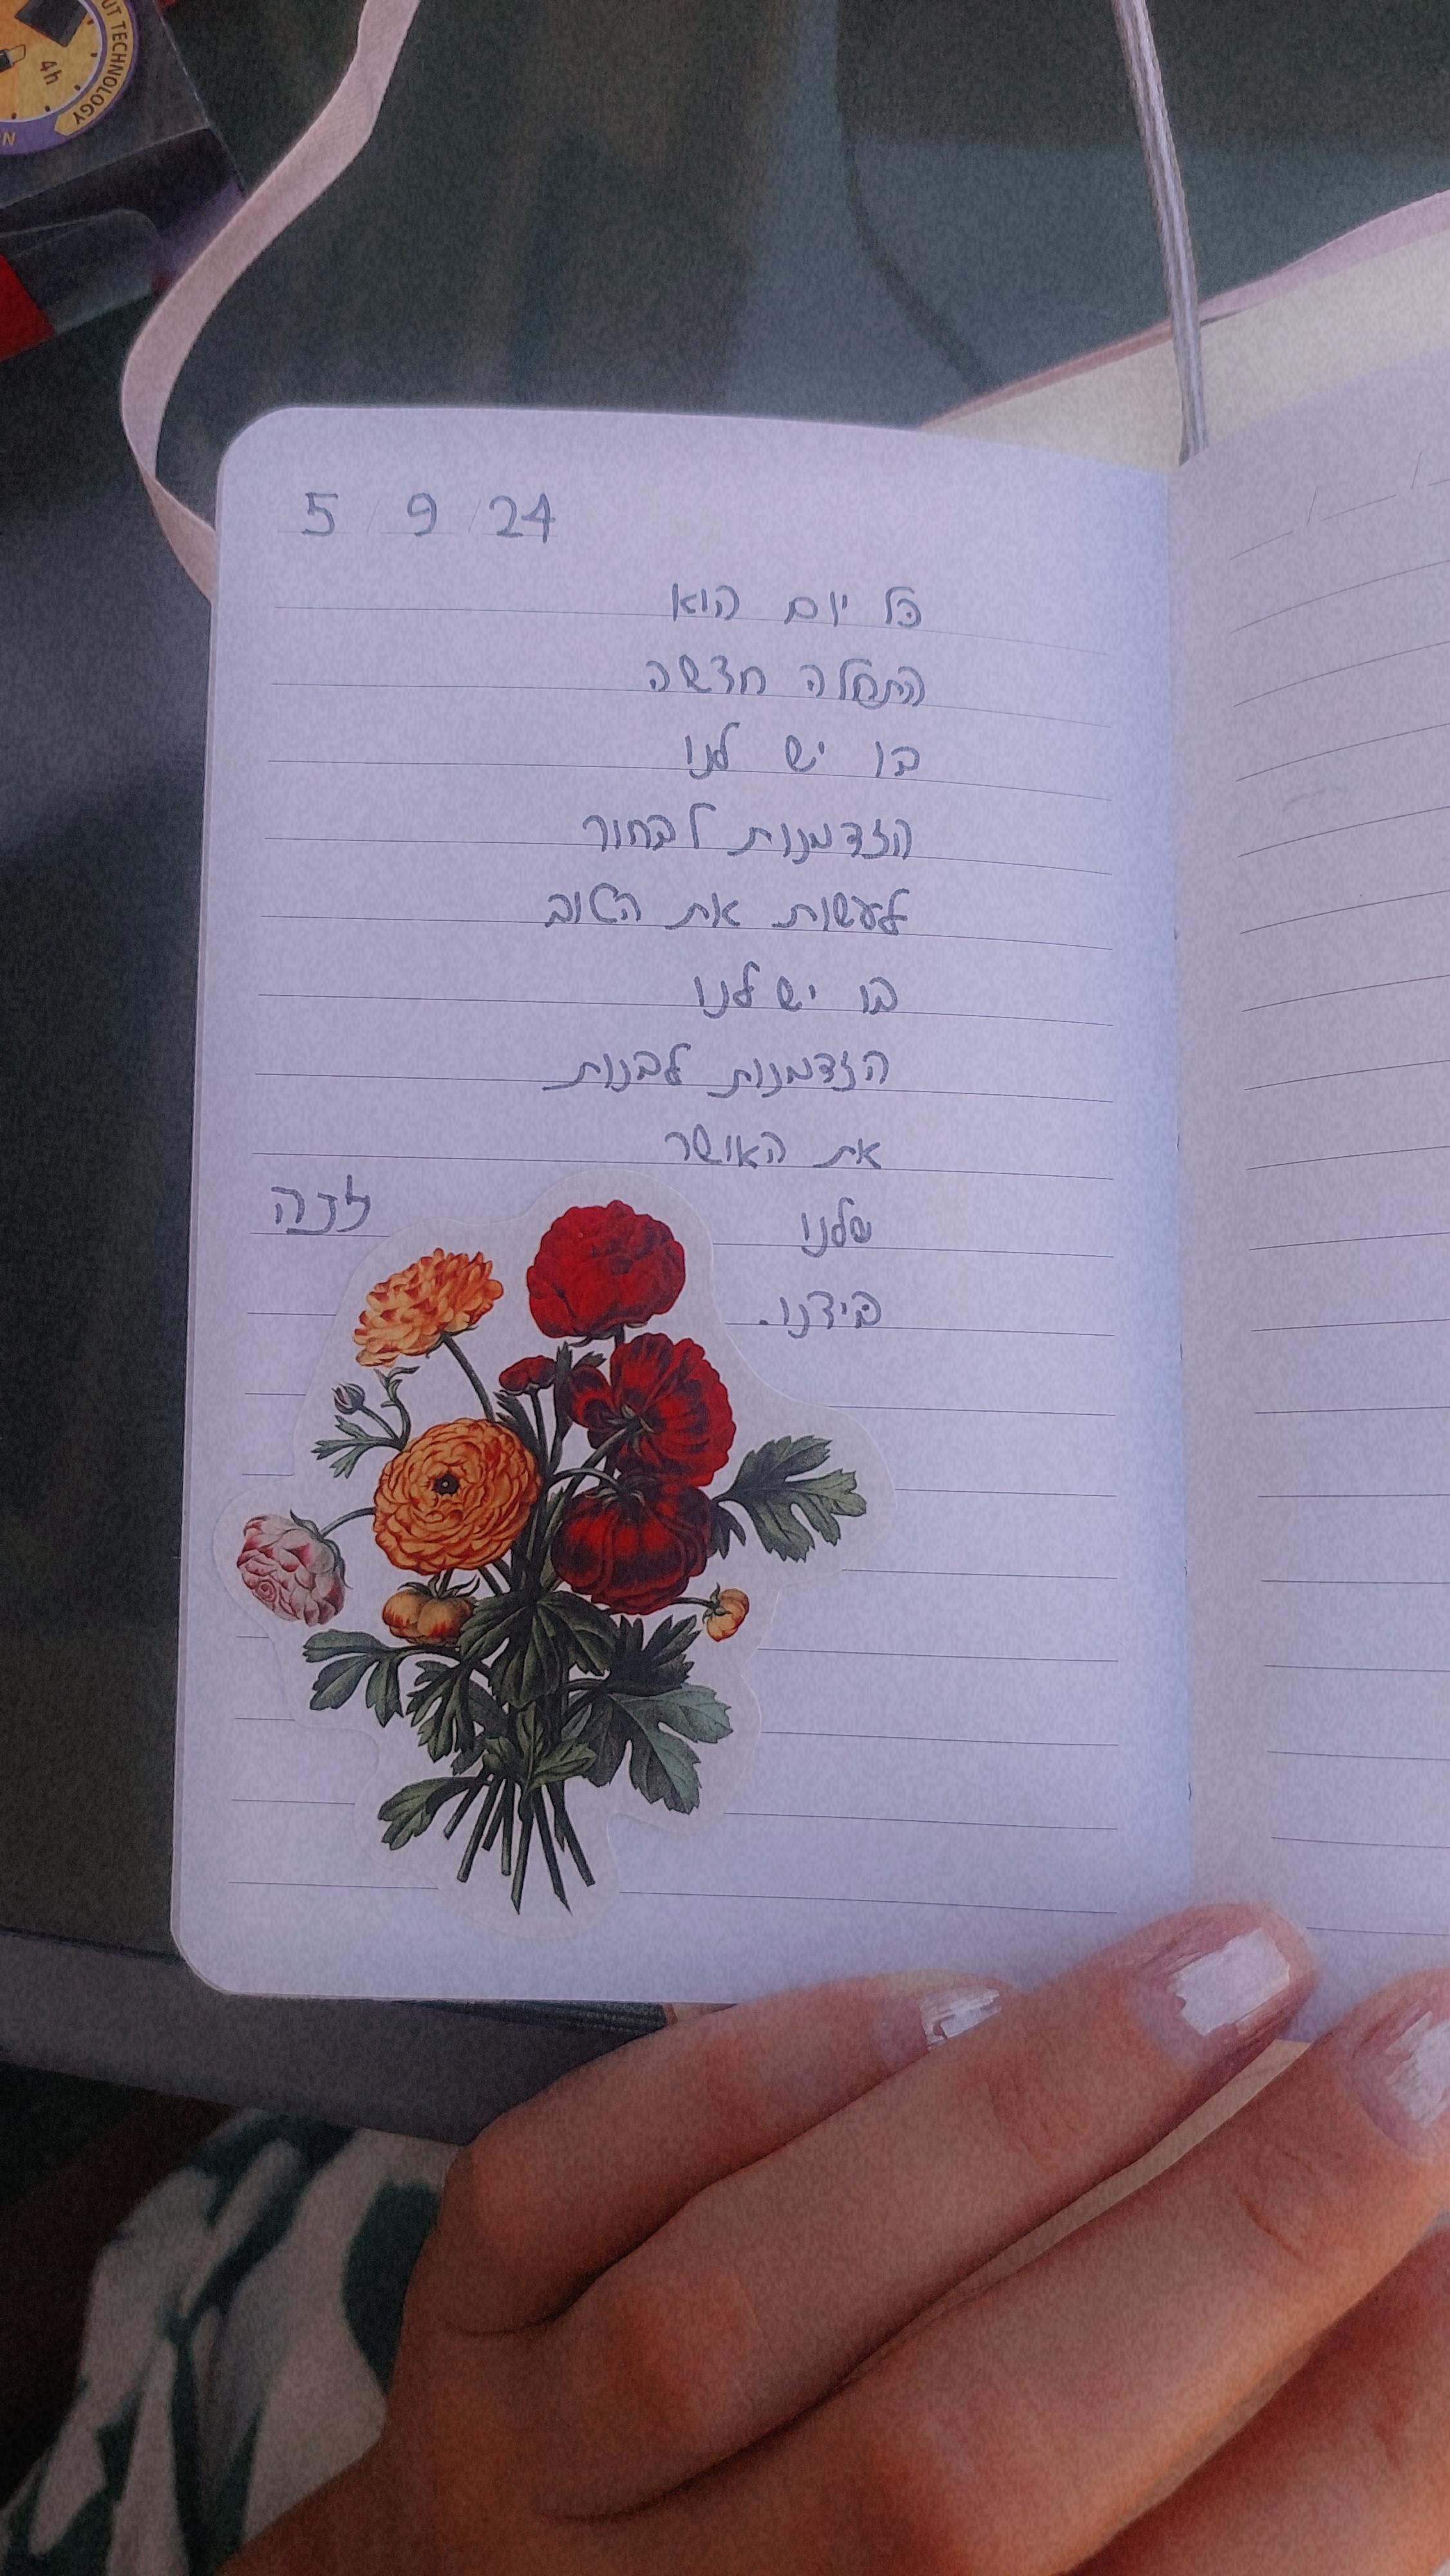 UT TECHNOLOGY
4h
5 / 9 / 24
כל יום הוא
התחלה חדשה
בו יש לנו
הזדמנות לבחור
לעשות את הטוב
בו יש לנו
הזדמנות לבנות
את האושר
שלנו
בידנו.